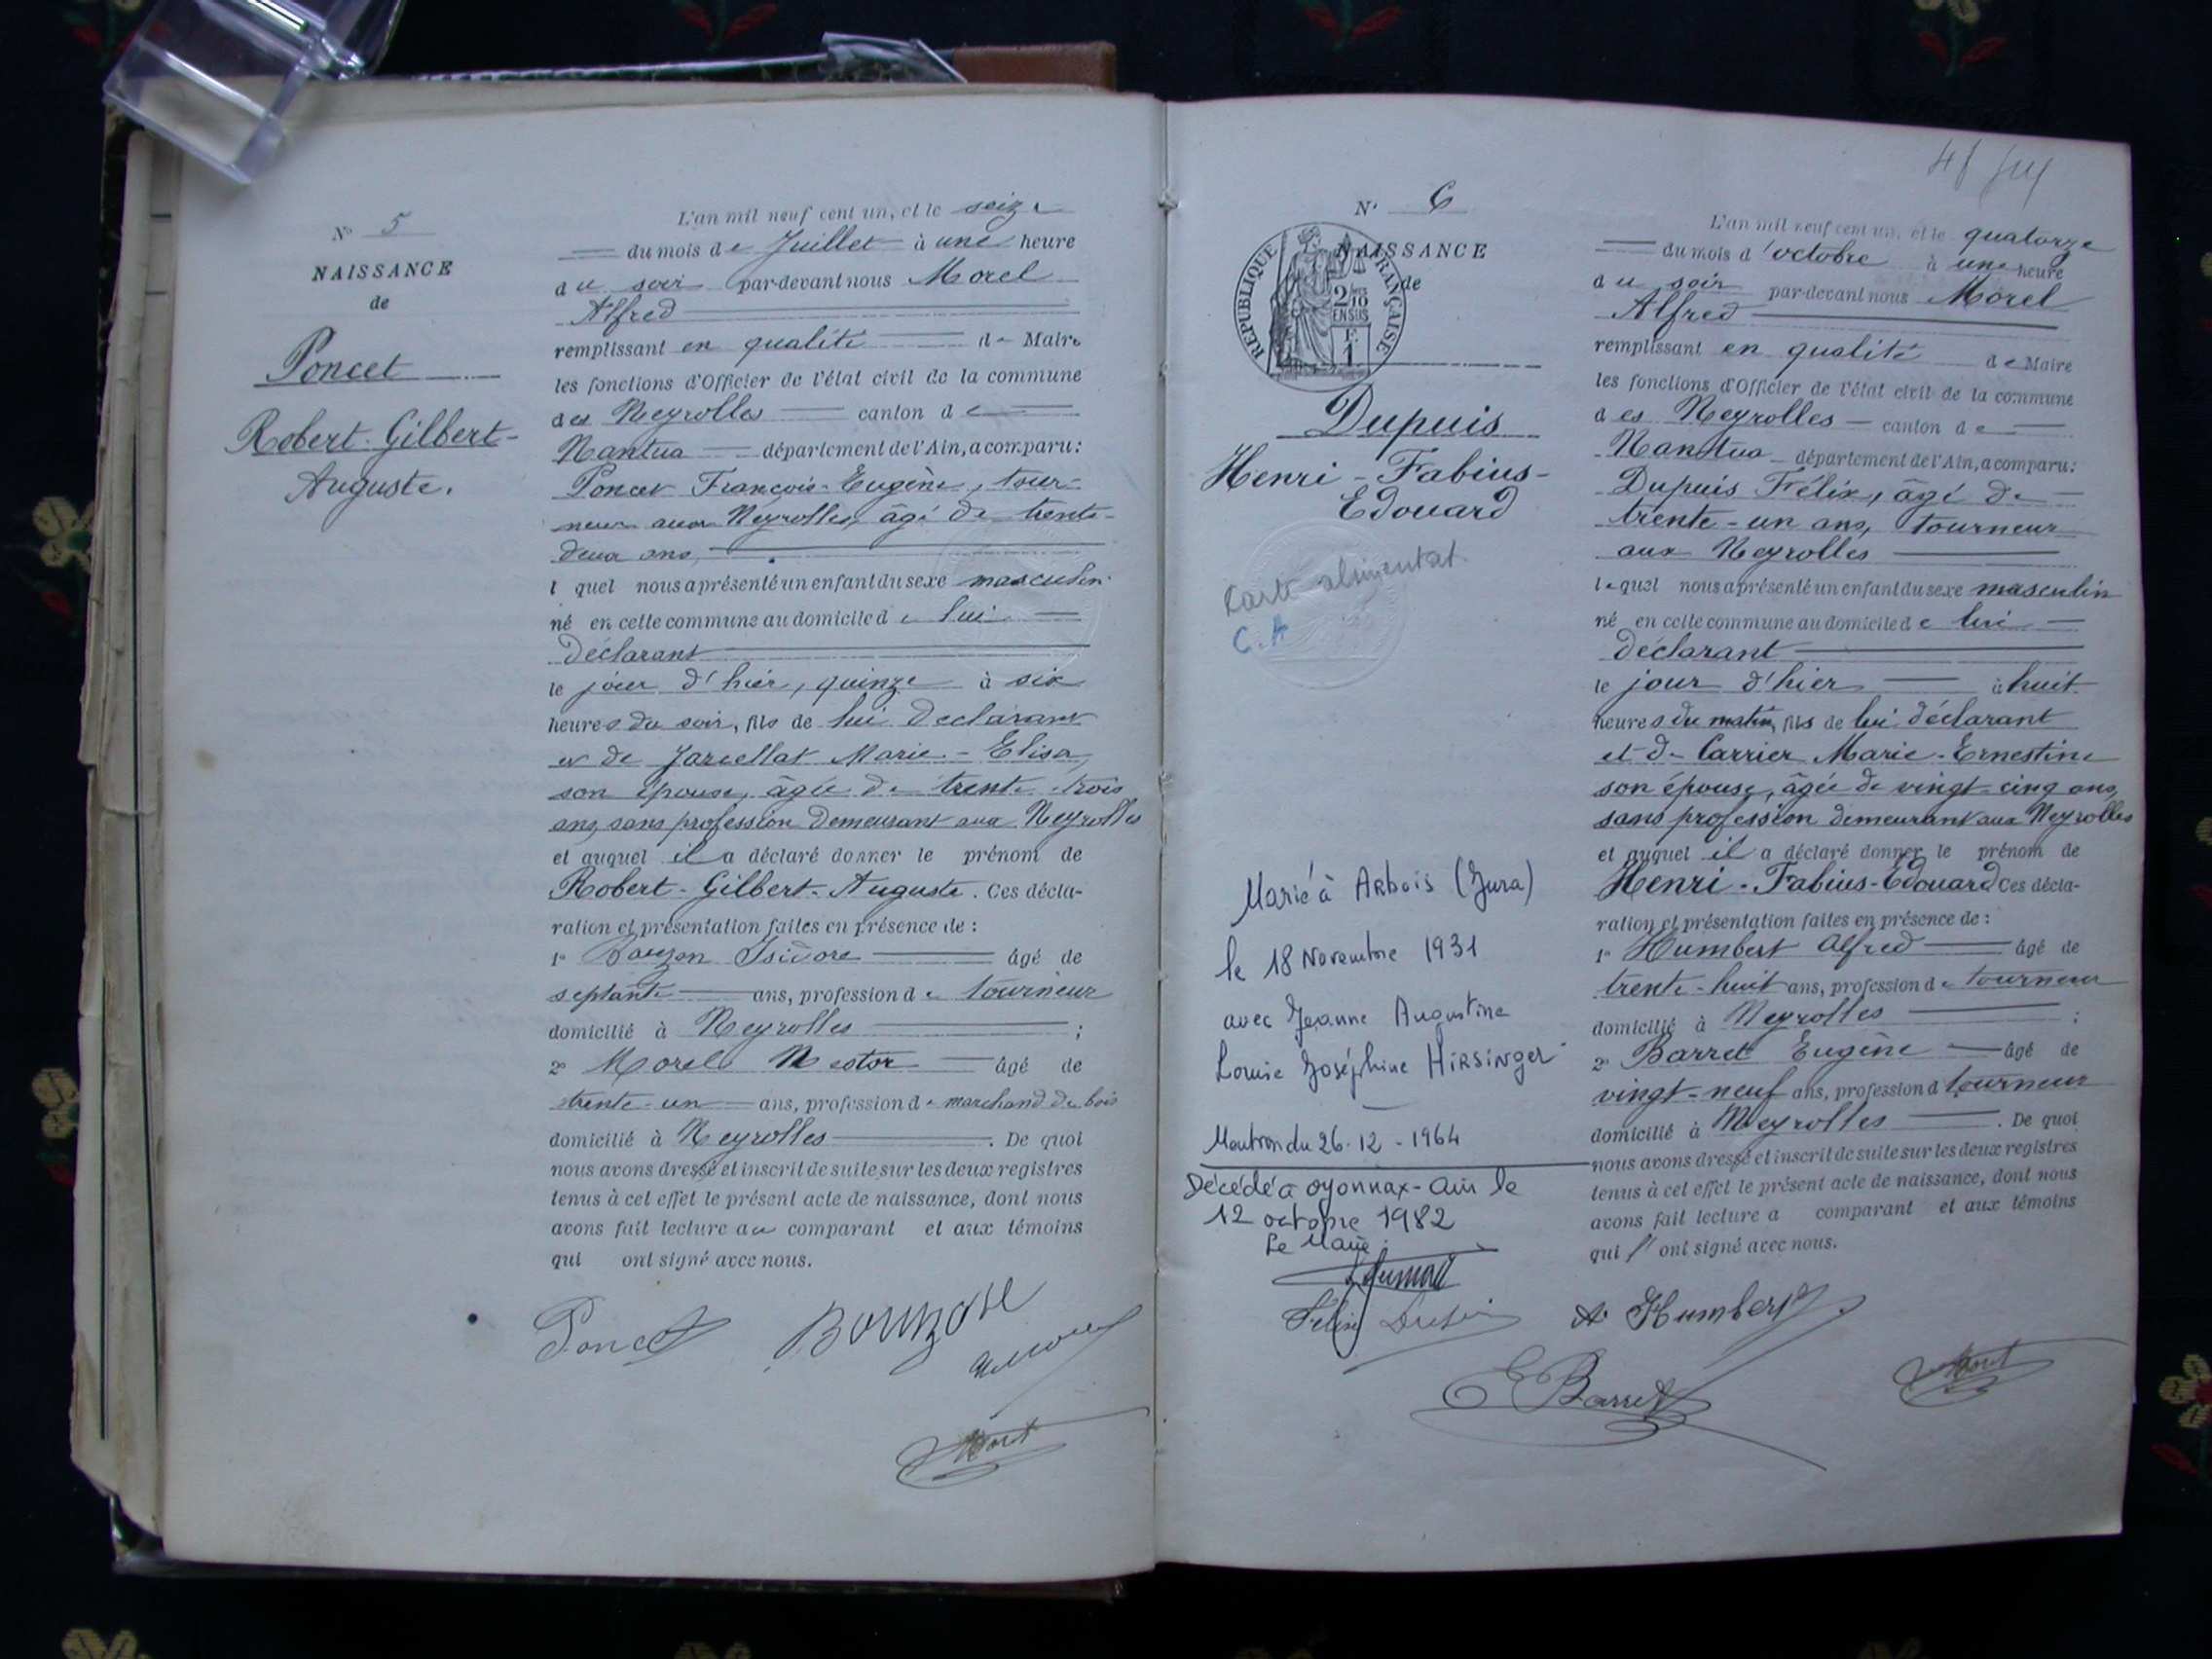 N° 5
NAISSANCE
de
Poncet
Robert-Gilbert-
Auguste.
L'an mil neuf cent un, et le seize
du mois de Juillet à une heure
du soir par-devant nous Morel
Alfred
remplissant en qualité de Maire
les fonctions d'Officier de l'état civil de la commune
des Neyrolles canton de
Nantua département de l'Ain, a comparu:
Poncet François-Eugène, tour-
neur aux Neyrolles, âgé de trente-
deux ans,
l quel nous a présenté un enfant du sexe masculin
né en cette commune au domicile de lui
déclarant
le jour d'hier, quinze à six
heures du soir, fils de lui déclarant
et de Jarcellat Marie-Elisa,
son épouse, âgée de trente-trois
ans, sans profession demeurant aux Neyrolles
et auquel il a déclaré donner le prénom de
Robert-Gilbert-Auguste. Ces décla-
ration et présentation faites en présence de :
1° Bouzon Isidore âgé de
septante ans, profession de tourneur
domicilié à Neyrolles ;
2° Morel Nestor âgé de
trente-un ans, profession de marchand de bois
domicilié à Neyrolles . De quoi
nous avons dressé et inscrit de suite sur les deux registres
tenus à cet effet le présent acte de naissance, dont nous
avons fait lecture au comparant et aux témoins
qui ont signé avec nous.
Poncet Bouzon
Morel
N° 6
NAISSANCE
de
REPUBLIQUE FRANÇAISE
2/10
EN SUS
F.
1
Dupuis
Henri-Fabius-
Edouard
Carte alimentat.
C.A
Marié à Arbois (Jura)
le 18 Novembre 1931
avec Jeanne Augustine
Louise Joséphine HIRSINger
Mention du 26-12-1964
Décédé à Oyonnax-Ain le
12 octobre 1982
Le Maire
L'an mil neuf cent un, et le quatorze
du mois d'octobre à une heure
du soir par-devant nous Morel
Alfred
remplissant en qualité de Maire
les fonctions d'Officier de l'état civil de la commune
des Neyrolles canton de
Nantua département de l'Ain, a comparu:
Dupuis Félix, âgé de
trente-un ans, tourneur
aux Neyrolles
lequel nous a présenté un enfant du sexe masculin
né en cette commune au domicile de lui
déclarant
le jour d'hier à huit
heures du matin, fils de lui déclarant
et de Carrier Marie-Ernestine
son épouse, âgée de vingt-cinq ans,
sans profession demeurant aux Neyrolles
et auquel il a déclaré donner le prénom de
Henri-Fabius-Edouard Ces décla-
ration et présentation faites en présence de :
1° Humbert Alfred âgé de
trente-huit ans, profession de tourneur
domicilié à Neyrolles ;
2° Barret Eugène âgé de
vingt-neuf ans, profession d tourneur
domicilié à Neyrolles . De quoi
nous avons dressé et inscrit de suite sur les deux registres
tenus à cet effet le présent acte de naissance, dont nous
avons fait lecture a comparant et aux témoins
qui l' ont signé avec nous.
Félix Dupuis A. Humbert
E Barret Morel